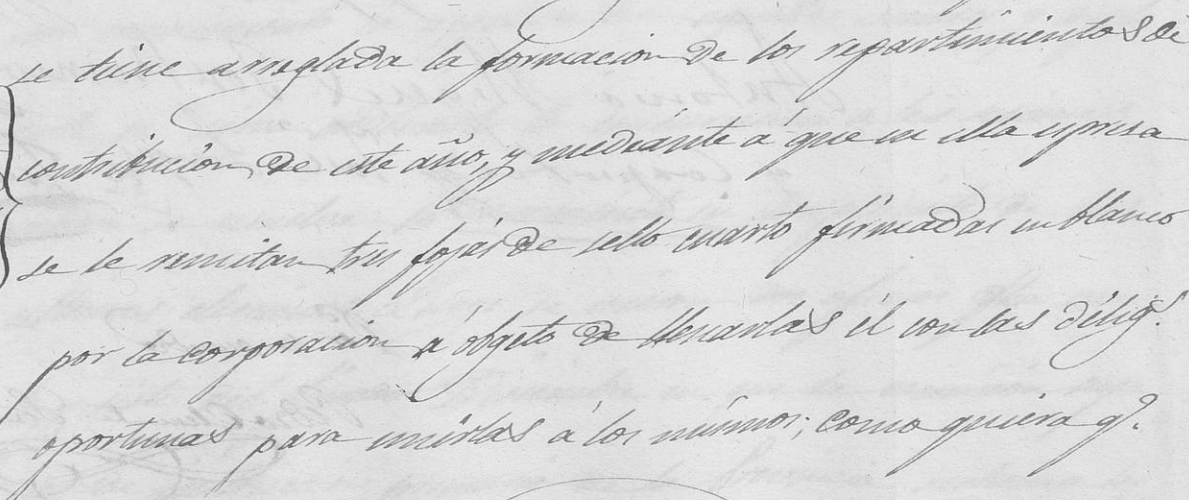 se tiene arreglada la formacion de los repartimientos de
contribucion de este año, y mediante á que en ella espresa
se le remitan tres fojas de sello cuarto firmadas en blanco
por la corporacion á objeto de llenarlas él con las dilig.s
oportunas para unirlas á los mismos; como quiera q.e